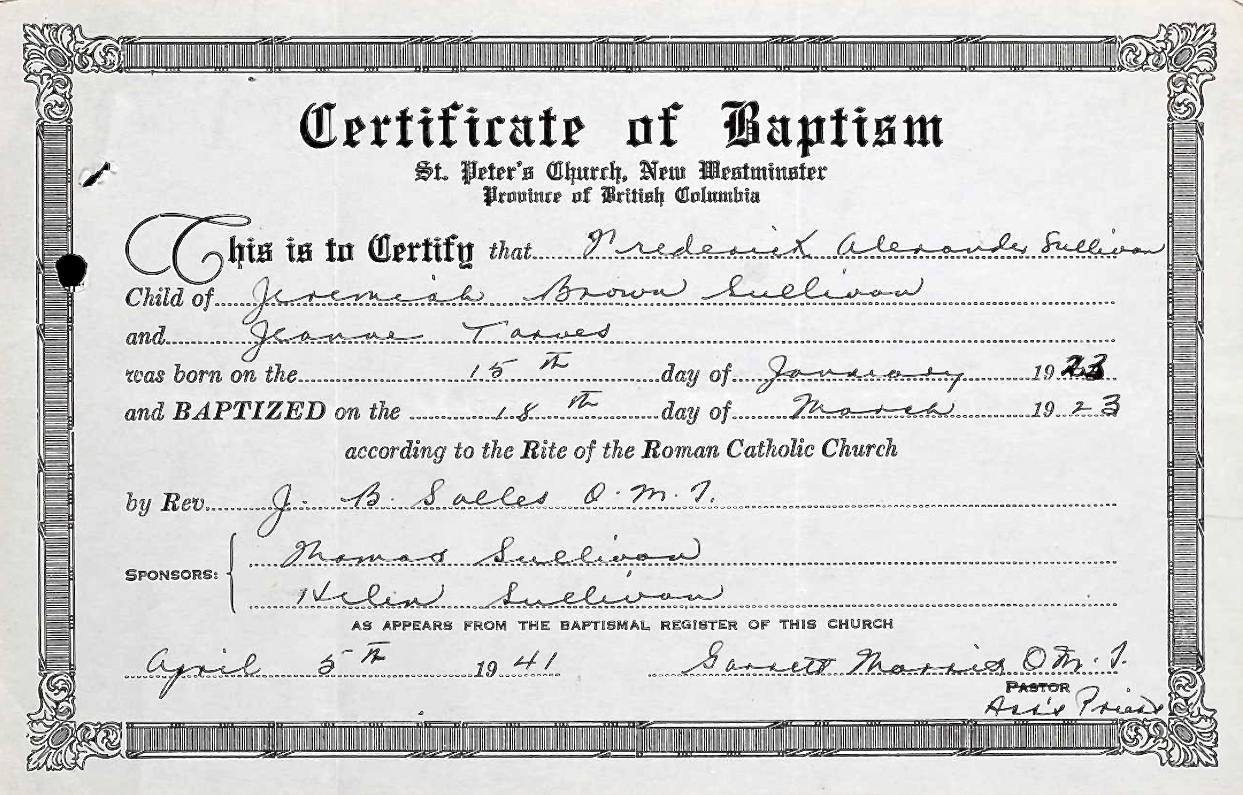 Certificate of Baptism
St. Peter's Church, New Westminster
Province of British Columbia
This is to Certify that Frederick Alexander Sullivan
Child of Jeremiah Brown Sullivan
and Jeanne Tarves
was born on the 15th day of January 1923
and BAPTIZED on the 18th day of March 1923
according to the Rite of the Roman Catholic Church
by Rev. J. B. Salles O.M.I.
SPONSORS: Thomas Sullivan
Helen Sullivan
AS APPEARS FROM THE BAPTISMAL REGISTER OF THIS CHURCH
April 5th 1941 Garrett Morris O.M.I.
PASTOR
Ass's Priest